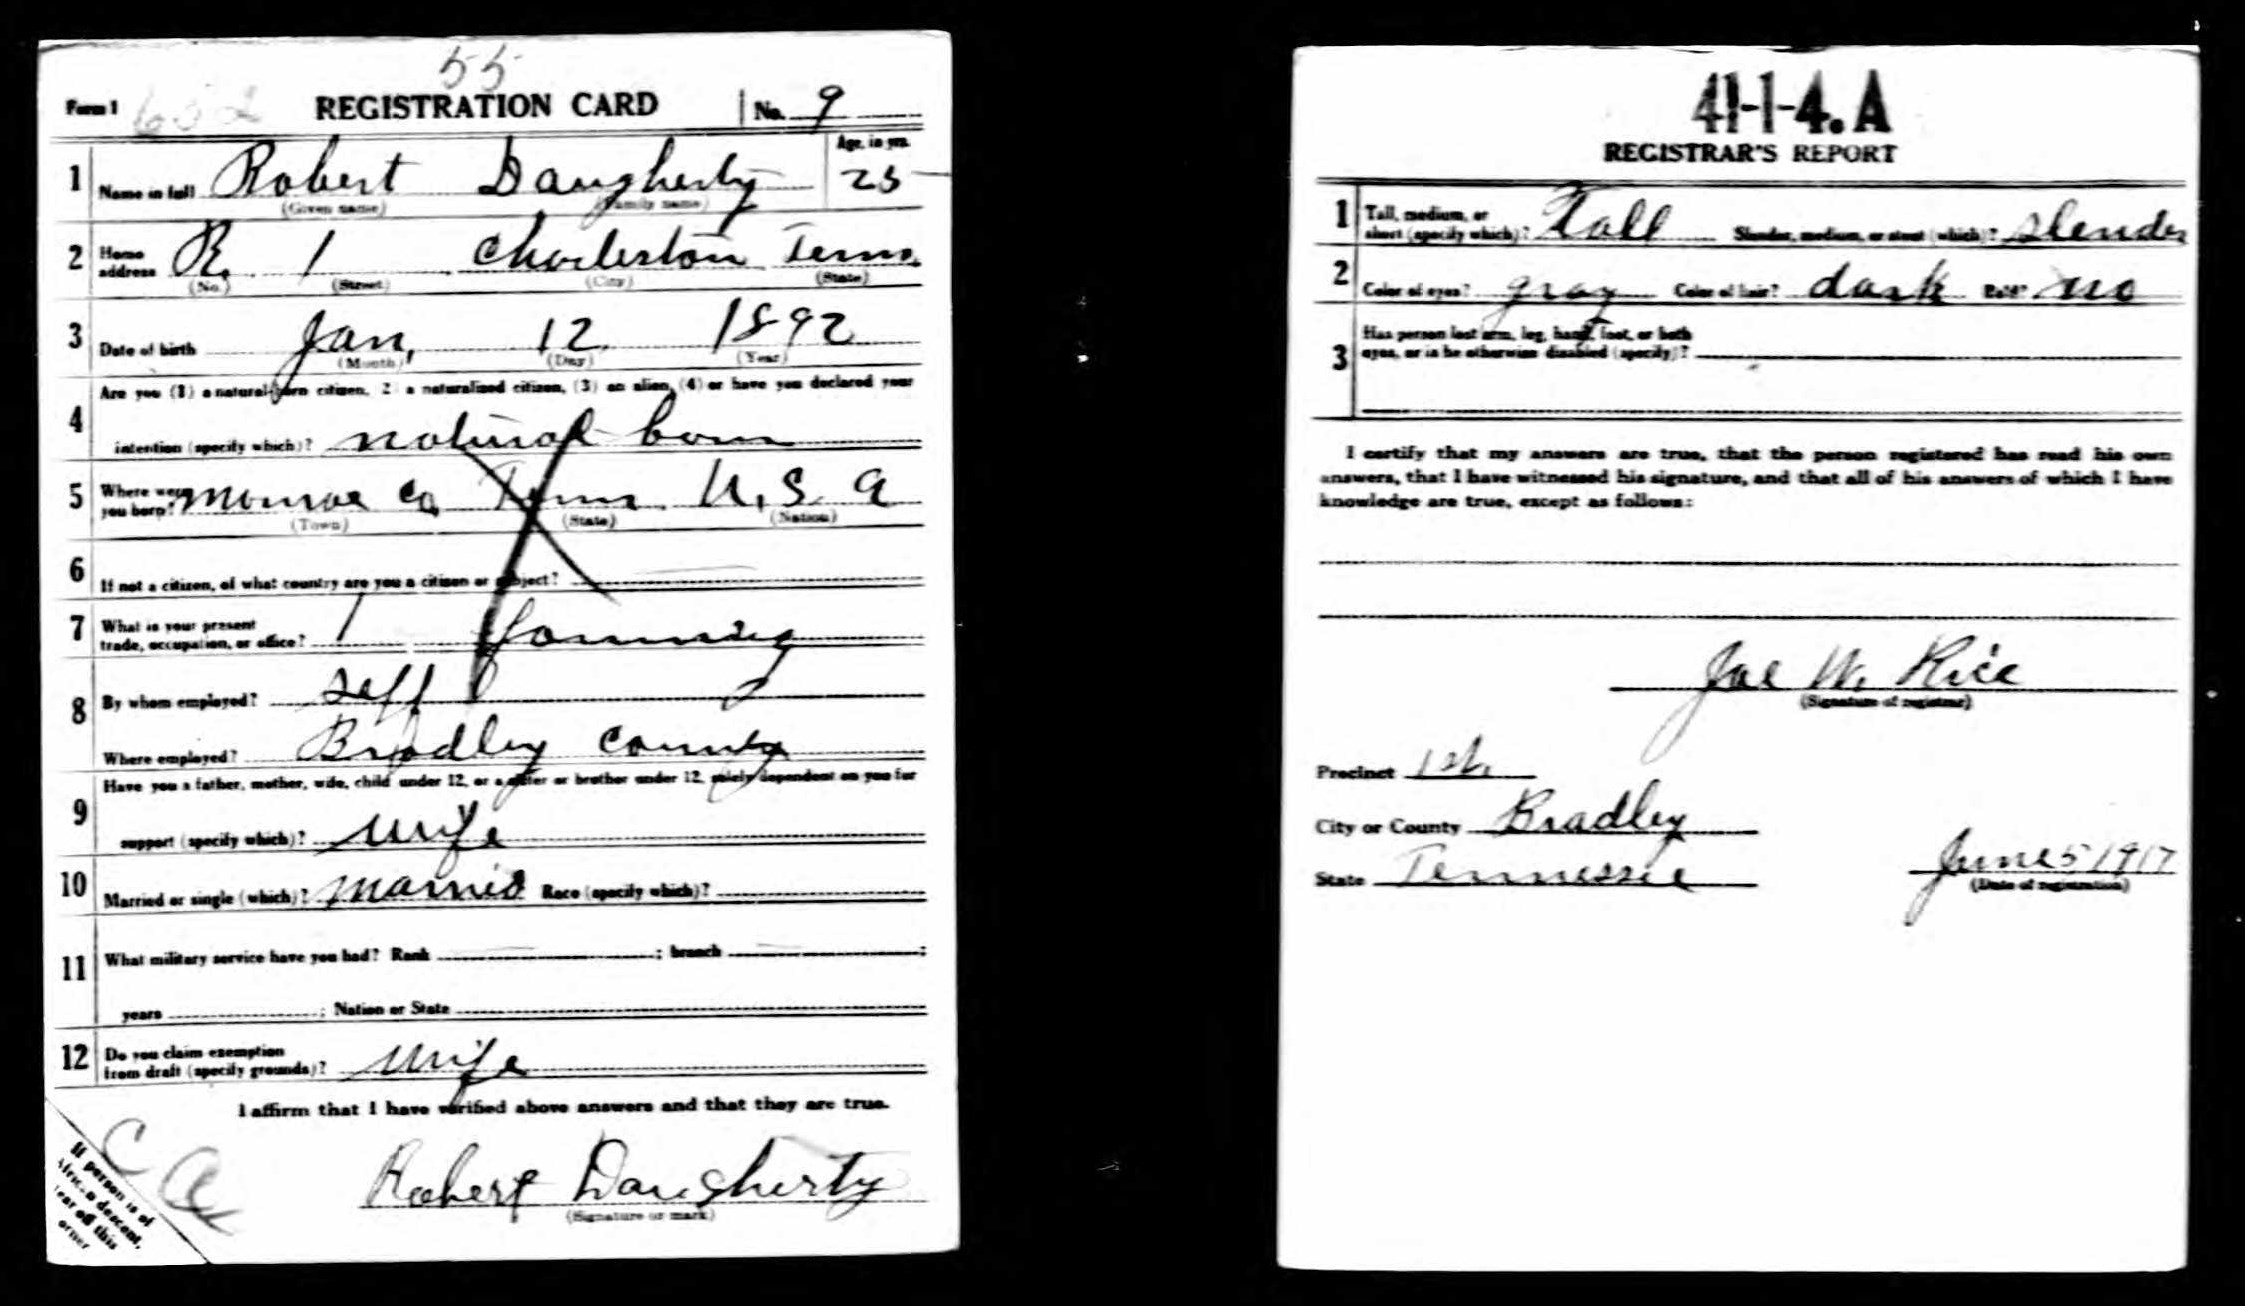 55
Form 1 652 REGISTRATION CARD No. 9
1 Name in full Robert Daugherty Age, in yrs. 25
(Given name) (Family name)
2 Home address R. 1 Charleston Tenn.
(No.) (Street) (City) (State)
3 Date of birth Jan, 12 1892
(Month) (Day) (Year)
4 Are you (1) a natural-born citizen, (2) a naturalized citizen, (3) an alien, (4) or have you declared your
intention (specify which)? natural born
5 Where were you born? Monroe Co Tenn. U.S.A
(Town) (State) (Nation)
6 If not a citizen, of what country are you a citizen or subject?
7 What is your present
trade, occupation, or office? 1 farming
8 By whom employed? self
Where employed? Bradley County
9 Have you a father, mother, wife, child under 12, or a sister or brother under 12, solely dependent on you for
support (specify which)? wife
10 Married or single (which)? Married Race (specify which)?
11 What military service have you had? Rank ; branch ;
years ; Nation or State
12 Do you claim exemption
from draft (specify grounds)? wife
I affirm that I have verified above answers and that they are true.
Robert Daugherty
(Signature or mark)
C a
If person is of
African descent,
tear off this
corner
41-1-4. A
REGISTRAR'S REPORT
1 Tall, medium, or
short (specify which)? Tall Slender, medium, or stout (which)? slender
2 Color of eyes? gray Color of hair? dark Bald? no
3 Has person lost arm, leg, hand, foot, or both
eyes, or is he otherwise disabled (specify)?
I certify that my answers are true, that the person registered has read his own
answers, that I have witnessed his signature, and that all of his answers of which I have
knowledge are true, except as follows:
Joe W. Rice
(Signature of registrar)
Precinct 1st.
City or County Bradley
State Tennessie June 5 1917
(Date of registration)